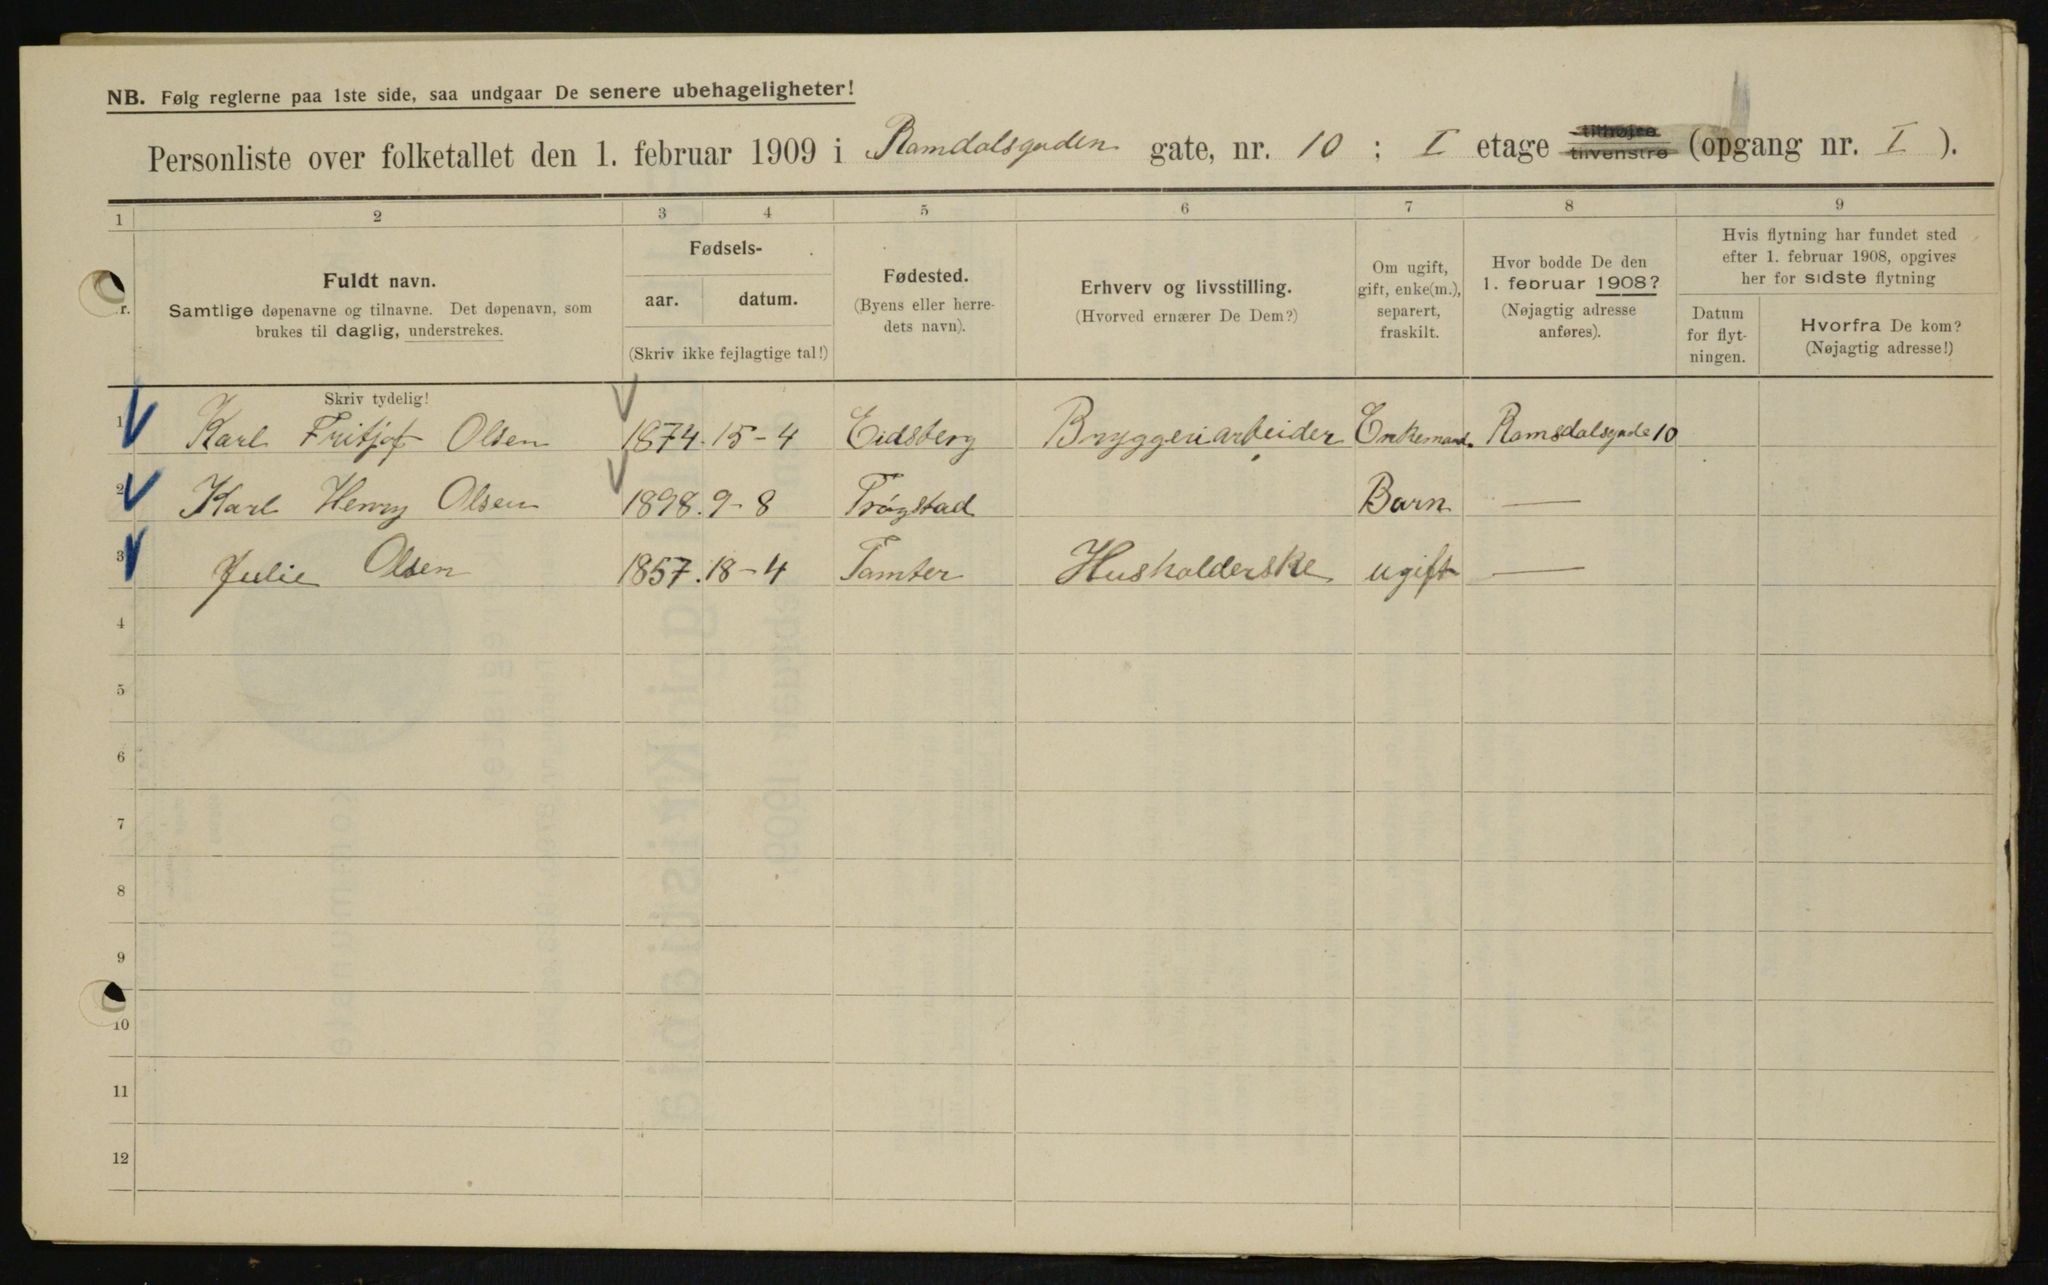 NB. Følg reglerne paa 1ste side, saa undgaar De senere ubehageligheter!
Personliste over folketallet den 1. februar 1909 i Ramdalsgaden gate, nr. 10 ; I etage tilhøjre tilvenstre (opgang nr. I ).
1 2 3 4 5 6 7 8 9
r.
Fuldt navn.
Samtlige døpenavne og tilnavne. Det døpenavn, som
brukes til daglig, understrekes.
Fødsels-
aar. datum.
(Skriv ikke fejlagtige tal!)
Fødested.
(Byens eller herre-
dets navn).
Erhverv og livsstilling.
(Hvorved ernærer De Dem?)
Om ugift,
gift, enke(m.),
separert,
fraskilt.
Hvor bodde De den
1. februar 1908?
(Nøjagtig adresse
anføres).
Hvis flytning har fundet sted
efter 1. februar 1908, opgives
her for sidste flytning
Datum
for flyt-
ningen.
Hvorfra De kom?
(Nøjagtig adresse!)
Skriv tydelig!
1 Karl Fritjof Olsen 1874. 15-4 Eidsberg Bryggeriarbeider Enkemand. Ramsdalsgade 10
2 Karl Henry Olsen 1898. 9-8 Trøgstad Barn —
3 Julie Olsen 1857. 18-4 Tomter Husholderske ugift —
4
5
6
7
8
9
10
11
12